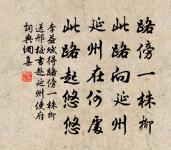 路傍一株柳
此路向延州
延州在何處
此路起悠悠
李益賦得路傍一株柳
送邢校書赴延州使府
詞典網集